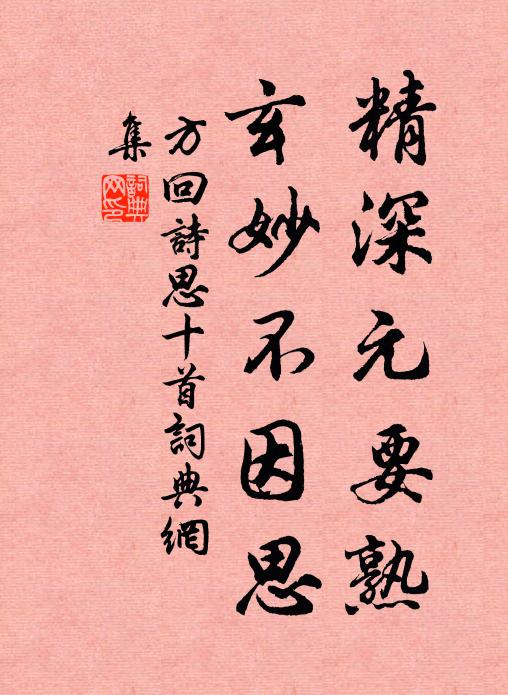 精深元要熟
玄妙不因思
方回詩思十首詞典網
集
詞典
网印